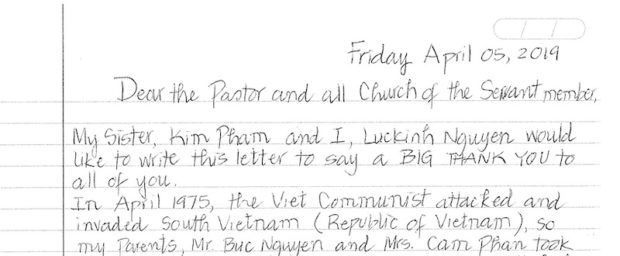 Friday April 05, 2019
Dear the Pastor and all Church of the Servant member,
My Sister, Kim Pham and I, Luckinh Nguyen would
like to write this letter to say a BIG THANK YOU to
all of you.
In April 1975, the Viet Communist attacked and
invaded South Vietnam (Republic of Vietnam), so
my Parents, Mr. Buc Nguyen and Mrs. Cam Phan took